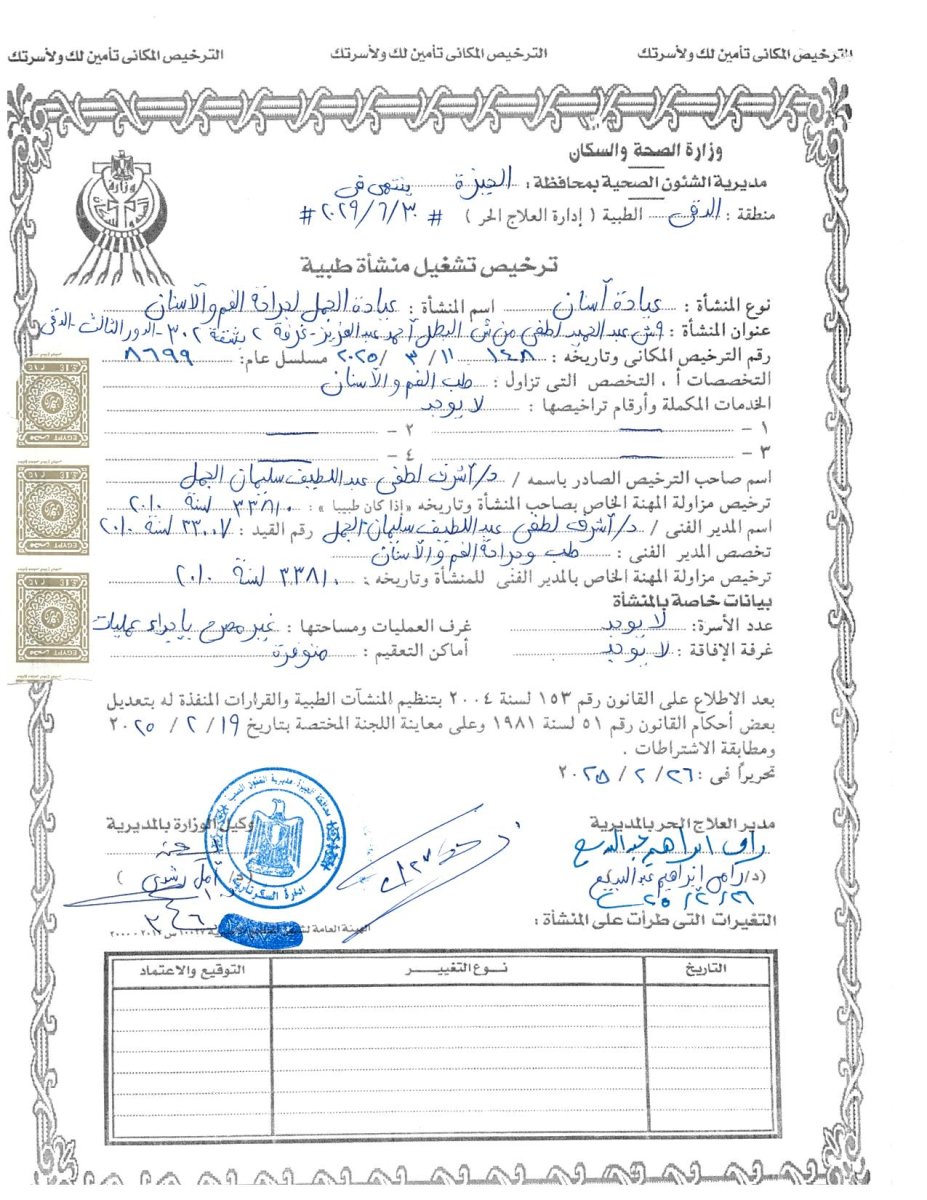 الترخيص المكانى تأمين لك ولأسرتك الترخيص المكانى تأمين لك ولأسرتك الترخيص المكانى تأمين لك ولأسرتك
وزارة الصحة والسكان
مديرية الشئون الصحية بمحافظة : الجيزة ينتهى فى
منطقة : الدقى الطبية ( إدارة العلاج الحر ) # ٢٠٢٩/٦/٣٠ #
ترخيص تشغيل منشأة طبية
نوع المنشأة : عيادة أسنان اسم المنشأة : عيادة الجمل لجراحة الفم والأسنان
عنوان المنشأة : ٩ ش عبد الحميد لطفى من ش البطل أحمد عبد العزيز - غرفة ٢ بشقة ٣٠٢ - الدور الثالث - الدقى
رقم الترخيص المكانى وتاريخه : ١٤٨ ١١ / ٣ / ٢٠٢٥ مسلسل عام: ٨٦٩٩
التخصصات أ ، التخصص التى تزاول : طب الفم والأسنان
الخدمات المكملة وأرقام تراخيصها : لا يوجد
١ - ٢ -
٣ - ٤ -
اسم صاحب الترخيص الصادر باسمه / د/ أشرف لطفى عبد اللطيف سليمان الجمل
ترخيص مزاولة المهنة الخاص بصاحب المنشأة وتاريخه «إذا كان طبيبا» : ٣٣٨١٠ لسنة ٢٠١٠
اسم المدير الفنى / د/ أشرف لطفى عبد اللطيف سليمان الجمل رقم القيد : ٣٣٠٠٧ لسنة ٢٠١٠
تخصص المدير الفنى : طب وجراحة الفم والأسنان
ترخيص مزاولة المهنة الخاص بالمدير الفنى للمنشأة وتاريخه : ٣٣٨١٠ لسنة ٢٠١٠
بيانات خاصة بالمنشأة
عدد الأسرة: لا يوجد غرف العمليات ومساحتها : غير مصرح بإجراء عمليات
غرفة الإفاقة : لا يوجد أماكن التعقيم : متوفرة
بعد الاطلاع على القانون رقم ١٥٣ لسنة ٢٠٠٤ بتنظيم المنشآت الطبية والقرارات المنفذة له بتعديل
بعض أحكام القانون رقم ٥١ لسنة ١٩٨١ وعلى معاينة اللجنة المختصة بتاريخ ١٩ / ٢ / ٢٠٢٥
ومطابقة الاشتراطات .
تحريراً فى : ٢٦ / ٢ / ٢٠٢٥
مدير العلاج الحر بالمديرية وكيل الوزارة بالمديرية
رامى ابراهيم عبد البديع
(د/ رامى ابراهيم عبد البديع (د/ أمل رشدى )
التغيرات التى طرأت على المنشأة :
إدارة السكرتارية
التاريخ نــوع التغييـــر التوقيع والاعتماد